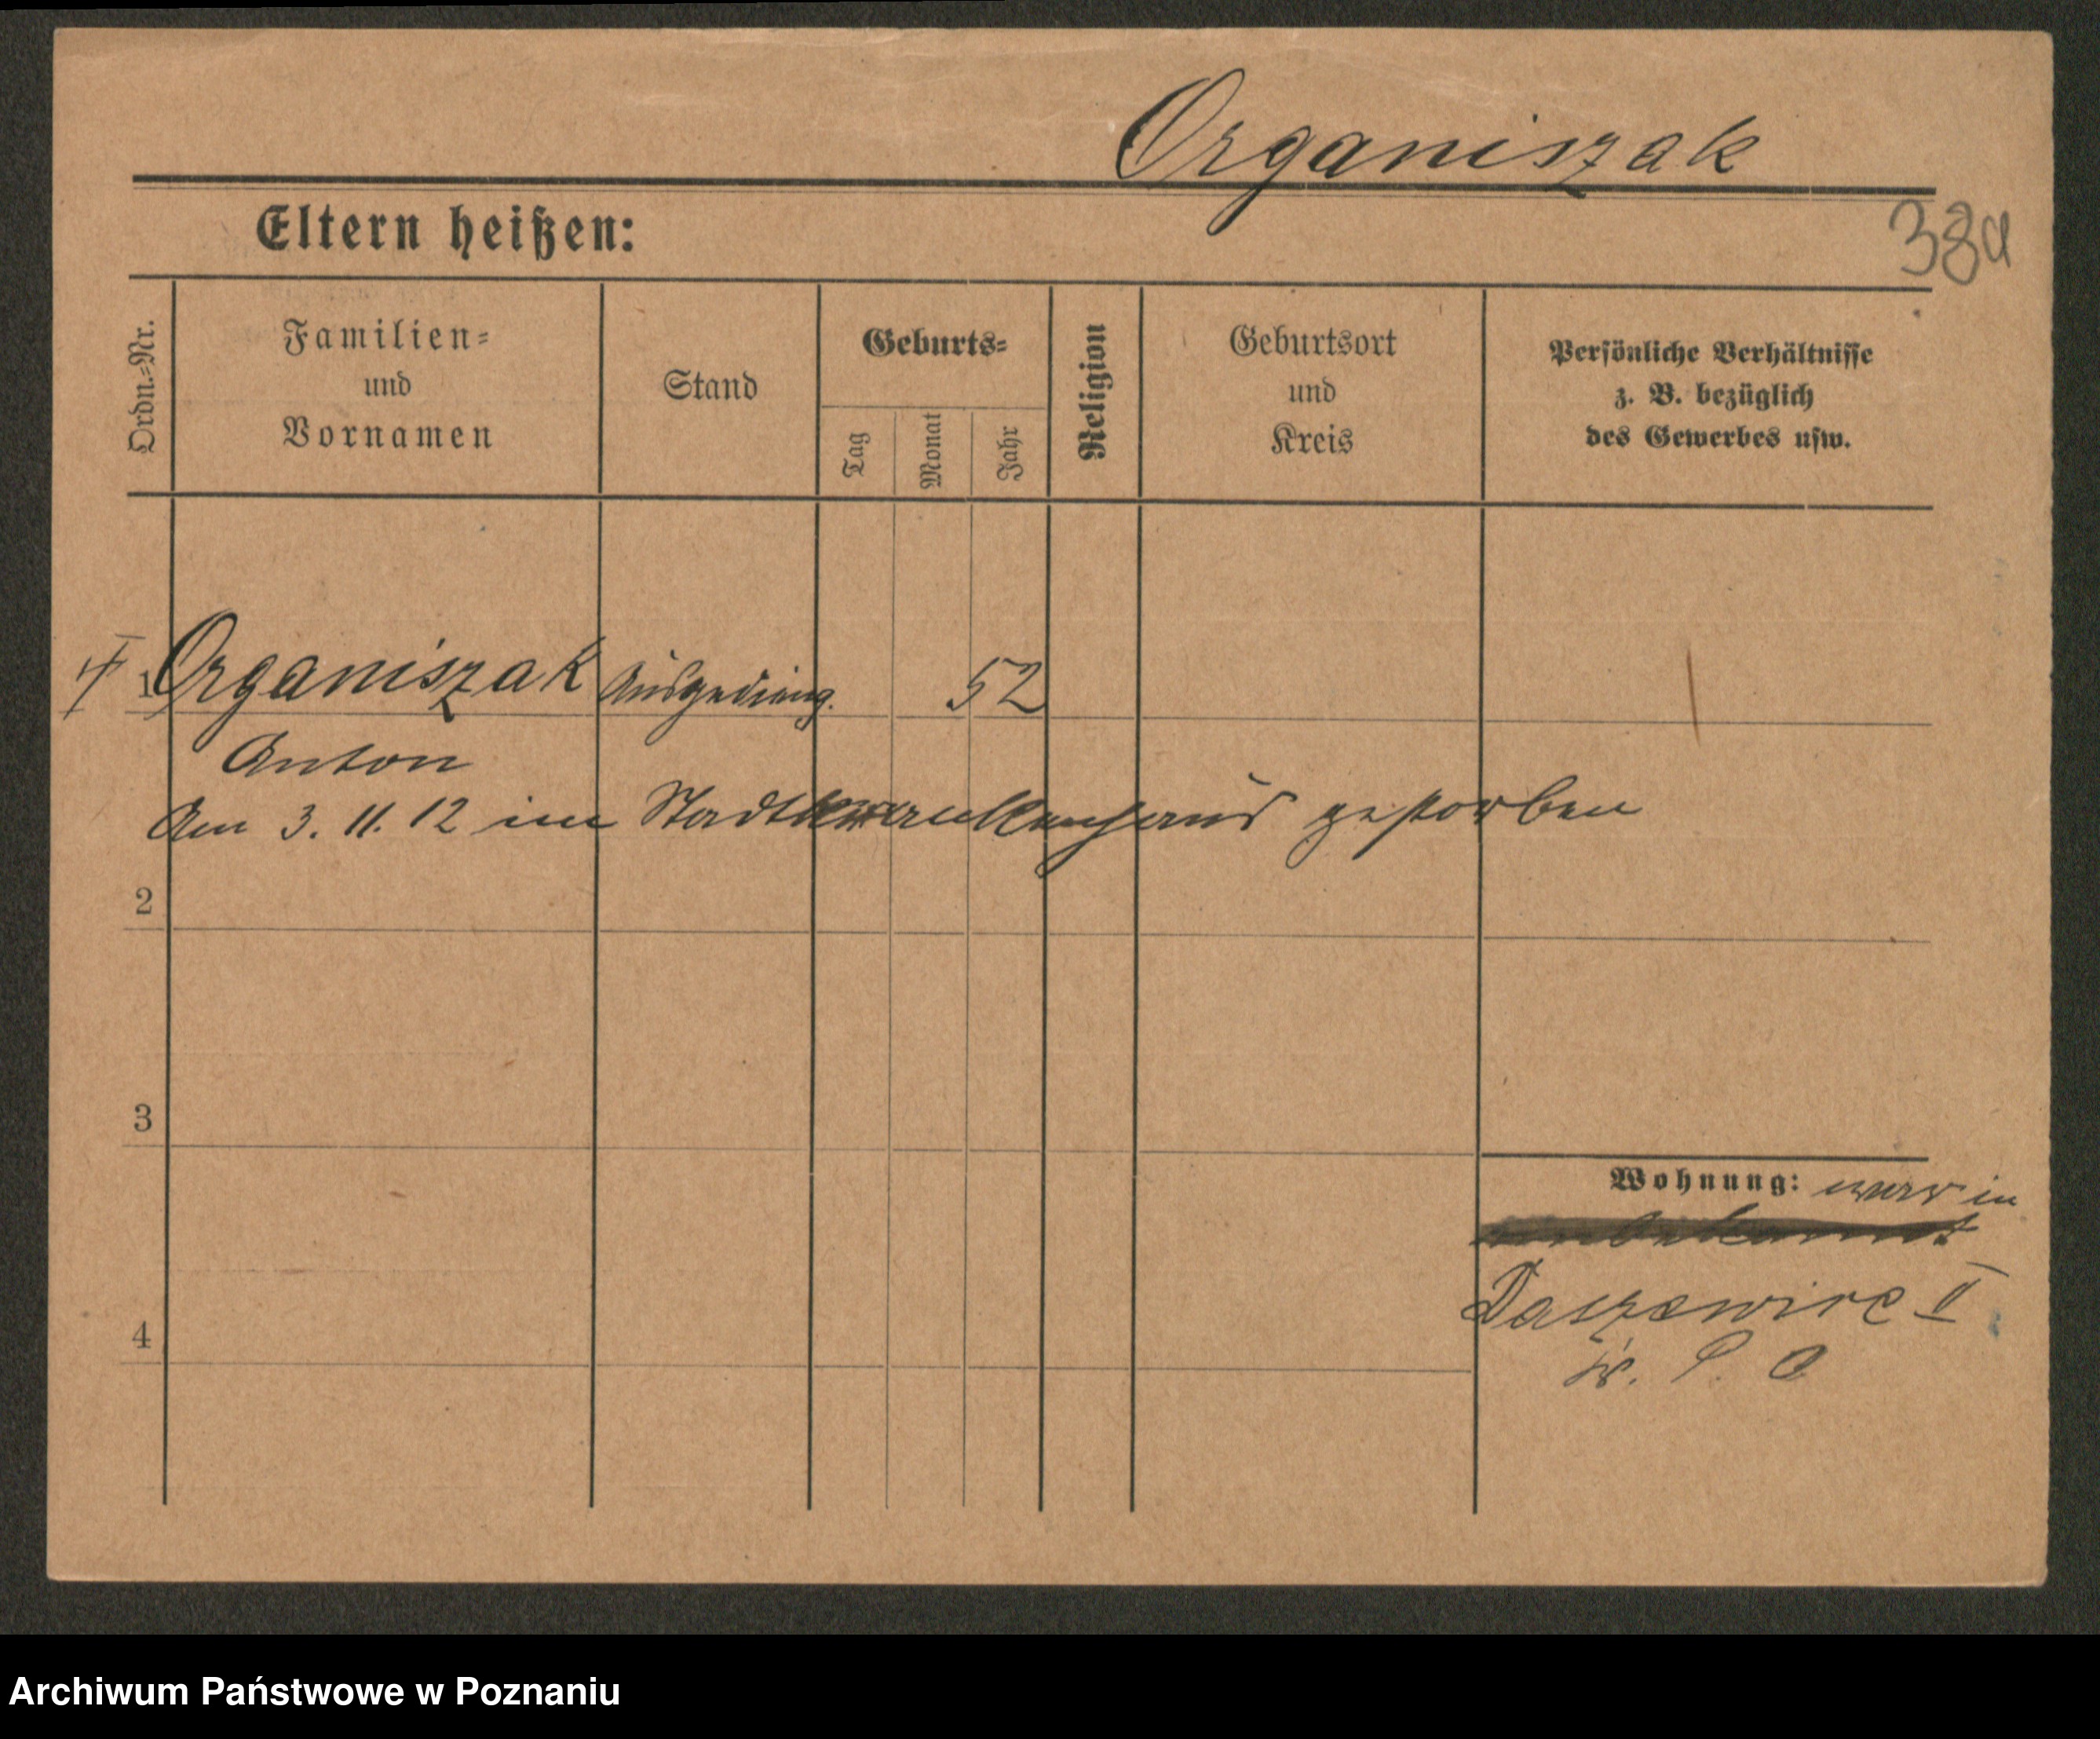 Organiszak
Eltern heißen:
38a
Ordn.-Nr.
Familien-
und
Vornamen
Stand
Geburts-
Tag
Monat
Jahr
Religion
Geburtsort
und
Kreis
Persönliche Verhältnisse
z. B. bezüglich
des Gewerbes usw.
1 Organiszak Ausgeding. 52
Anton
Am 3. 11. 12 im Stadtkrankenhaus gestorben
2
3
Wohnung: war in
unbekannt
Daszewice II
4
Kr. P. O
Archiwum Państwowe w Poznaniu